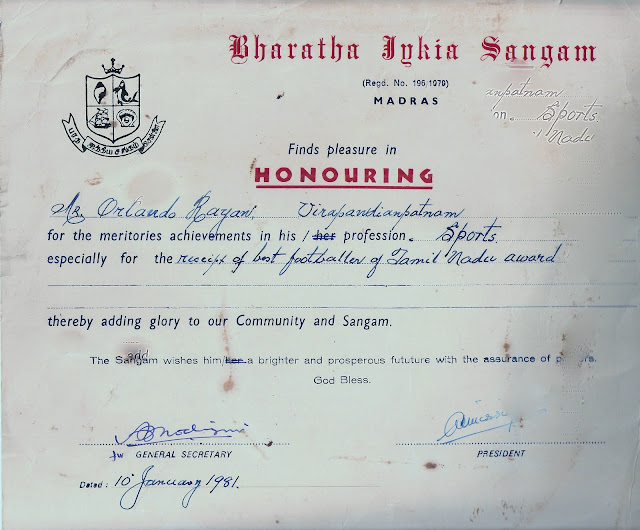 Bharatha Iykia Sangam
(Regd. No. 196/1979)
MADRAS
anpatnam
on. Sports.
Nadu
Finds pleasure in
HONOURING
Mr. Orlando Rayan, Virapandianpatnam
for the meritories achievements in his / her profession. Sports.
especially for the receipt of best footballer of Tamil Nadu award
thereby adding glory to our Community and Sangam.
add
The Sangam wishes him/her a brighter and prosperous fututure with the assurance of
God Bless.
for GENERAL SECRETARY
PRESIDENT
Dated : 10 January 1981.